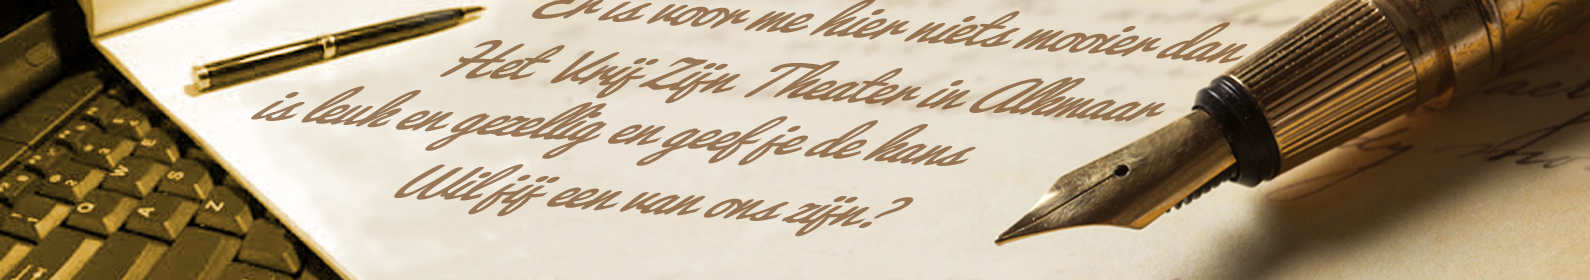 Er is voor me hier niets mooier dan
Het Vrij Zijn Theater in Alkmaar
is leuk en gezellig en geef je de kans
Wil jij een van ons zijn.?